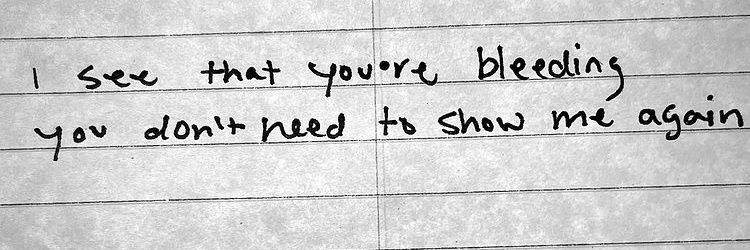 I see that you're bleeding
you don't need to show me again